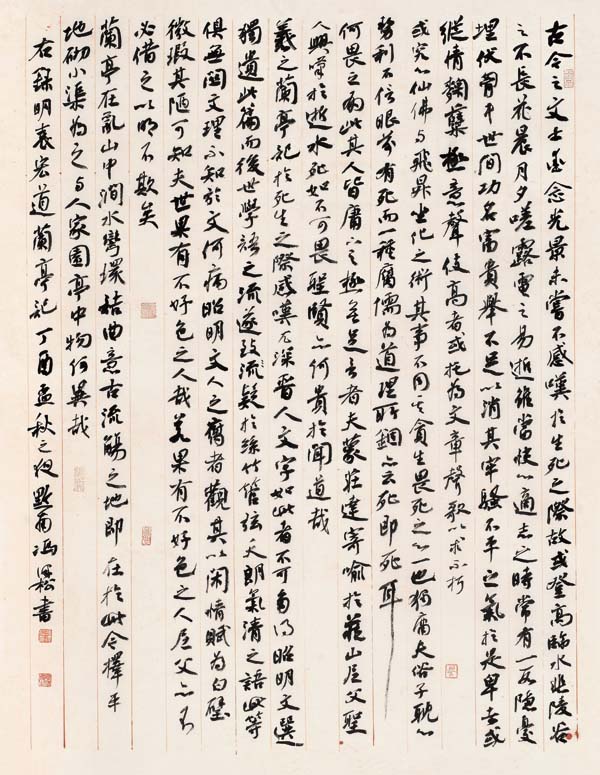 古今之文士愛念光景未嘗不感嘆於生死之際故或登高臨水悲陵谷
之不長花晨月夕嗟露電之易逝雖當快心適志之時常有一段隱憂
埋伏胷中世間功名富貴舉不足以消其牢騷不平之氣於是卑者或
縱情麴蘖極意聲伎高者或托為文章聲歌以求不朽
或究心仙佛與飛昇坐化之術其事不同其貪生畏死之心一也獨庸夫俗子耽心
勢利不信眼前有死而一種腐儒為道理所錮亦云死即死耳
何畏之有此其人皆庸下之極無足言者夫蒙莊達寄喻於藏山尼父聖
人興嘆於逝水死如不可畏聖賢亦何貴於聞道哉
羲之蘭亭記於死生之際感嘆尤深晉人文字如此者不可多得昭明文選
獨遺此篇而後世學語之流遂致流疑於絲竹管弦天朗氣清之語此等
俱無關文理不知於文何病昭明文人之腐者觀其以閑情賦為白璧
微瑕其陋可知夫世果有不好色之人哉若果有不好色之人尼父亦不
必借之以明不欺矣
蘭亭在亂山中澗水彎環詰曲意古流觴之地即在於此今擇平
地砌小渠為之與人家園亭中物何異哉
右錄明袁宏道蘭亭記丁酉孟秋之夜 馮 書